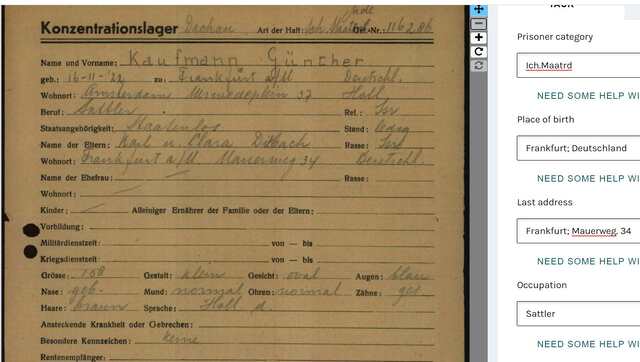 Jude
Konzentrationslager Dachau Art der Haft: Gef.-Nr. 116286
Name und Vorname: Kaufmann Günther
geb.: 16-11-'22 zu: Frankfurt a/M Deutschl.
Wohnort: Amsterdam 37 Holl
Beruf: Sattler Rel.: Isr
Staatsangehörigkeit: Staatenlos Stand: ledig
Name der Eltern: Karl u. Clara Rasse: Isr
Wohnort: Frankfurt a/M Mauerweg 34 Deutschl.
Name der Ehefrau: Rasse:
Wohnort:
Kinder: Alleiniger Ernährer der Familie oder der Eltern:
Vorbildung:
Militärdienstzeit: von — bis
Kriegsdienstzeit: von — bis
Grösse: 158 Gestalt: klein Gesicht: oval Augen: blau
Nase: geb. Mund: normal Ohren: normal Zähne:
Haare: braun Sprache: Holl d.
Ansteckende Krankheit oder Gebrechen:
Besondere Kennzeichen: keine
Rentenempfänger:
Prisoner category
Ich.Maatrd
NEED SOME HELP WI
Place of birth
Frankfurt; Deutschland
NEED SOME HELP WI
Last address
Frankfurt; Mauerweg. 34
NEED SOME HELP WI
Occupation
Sattler
NEED SOME HELP WI